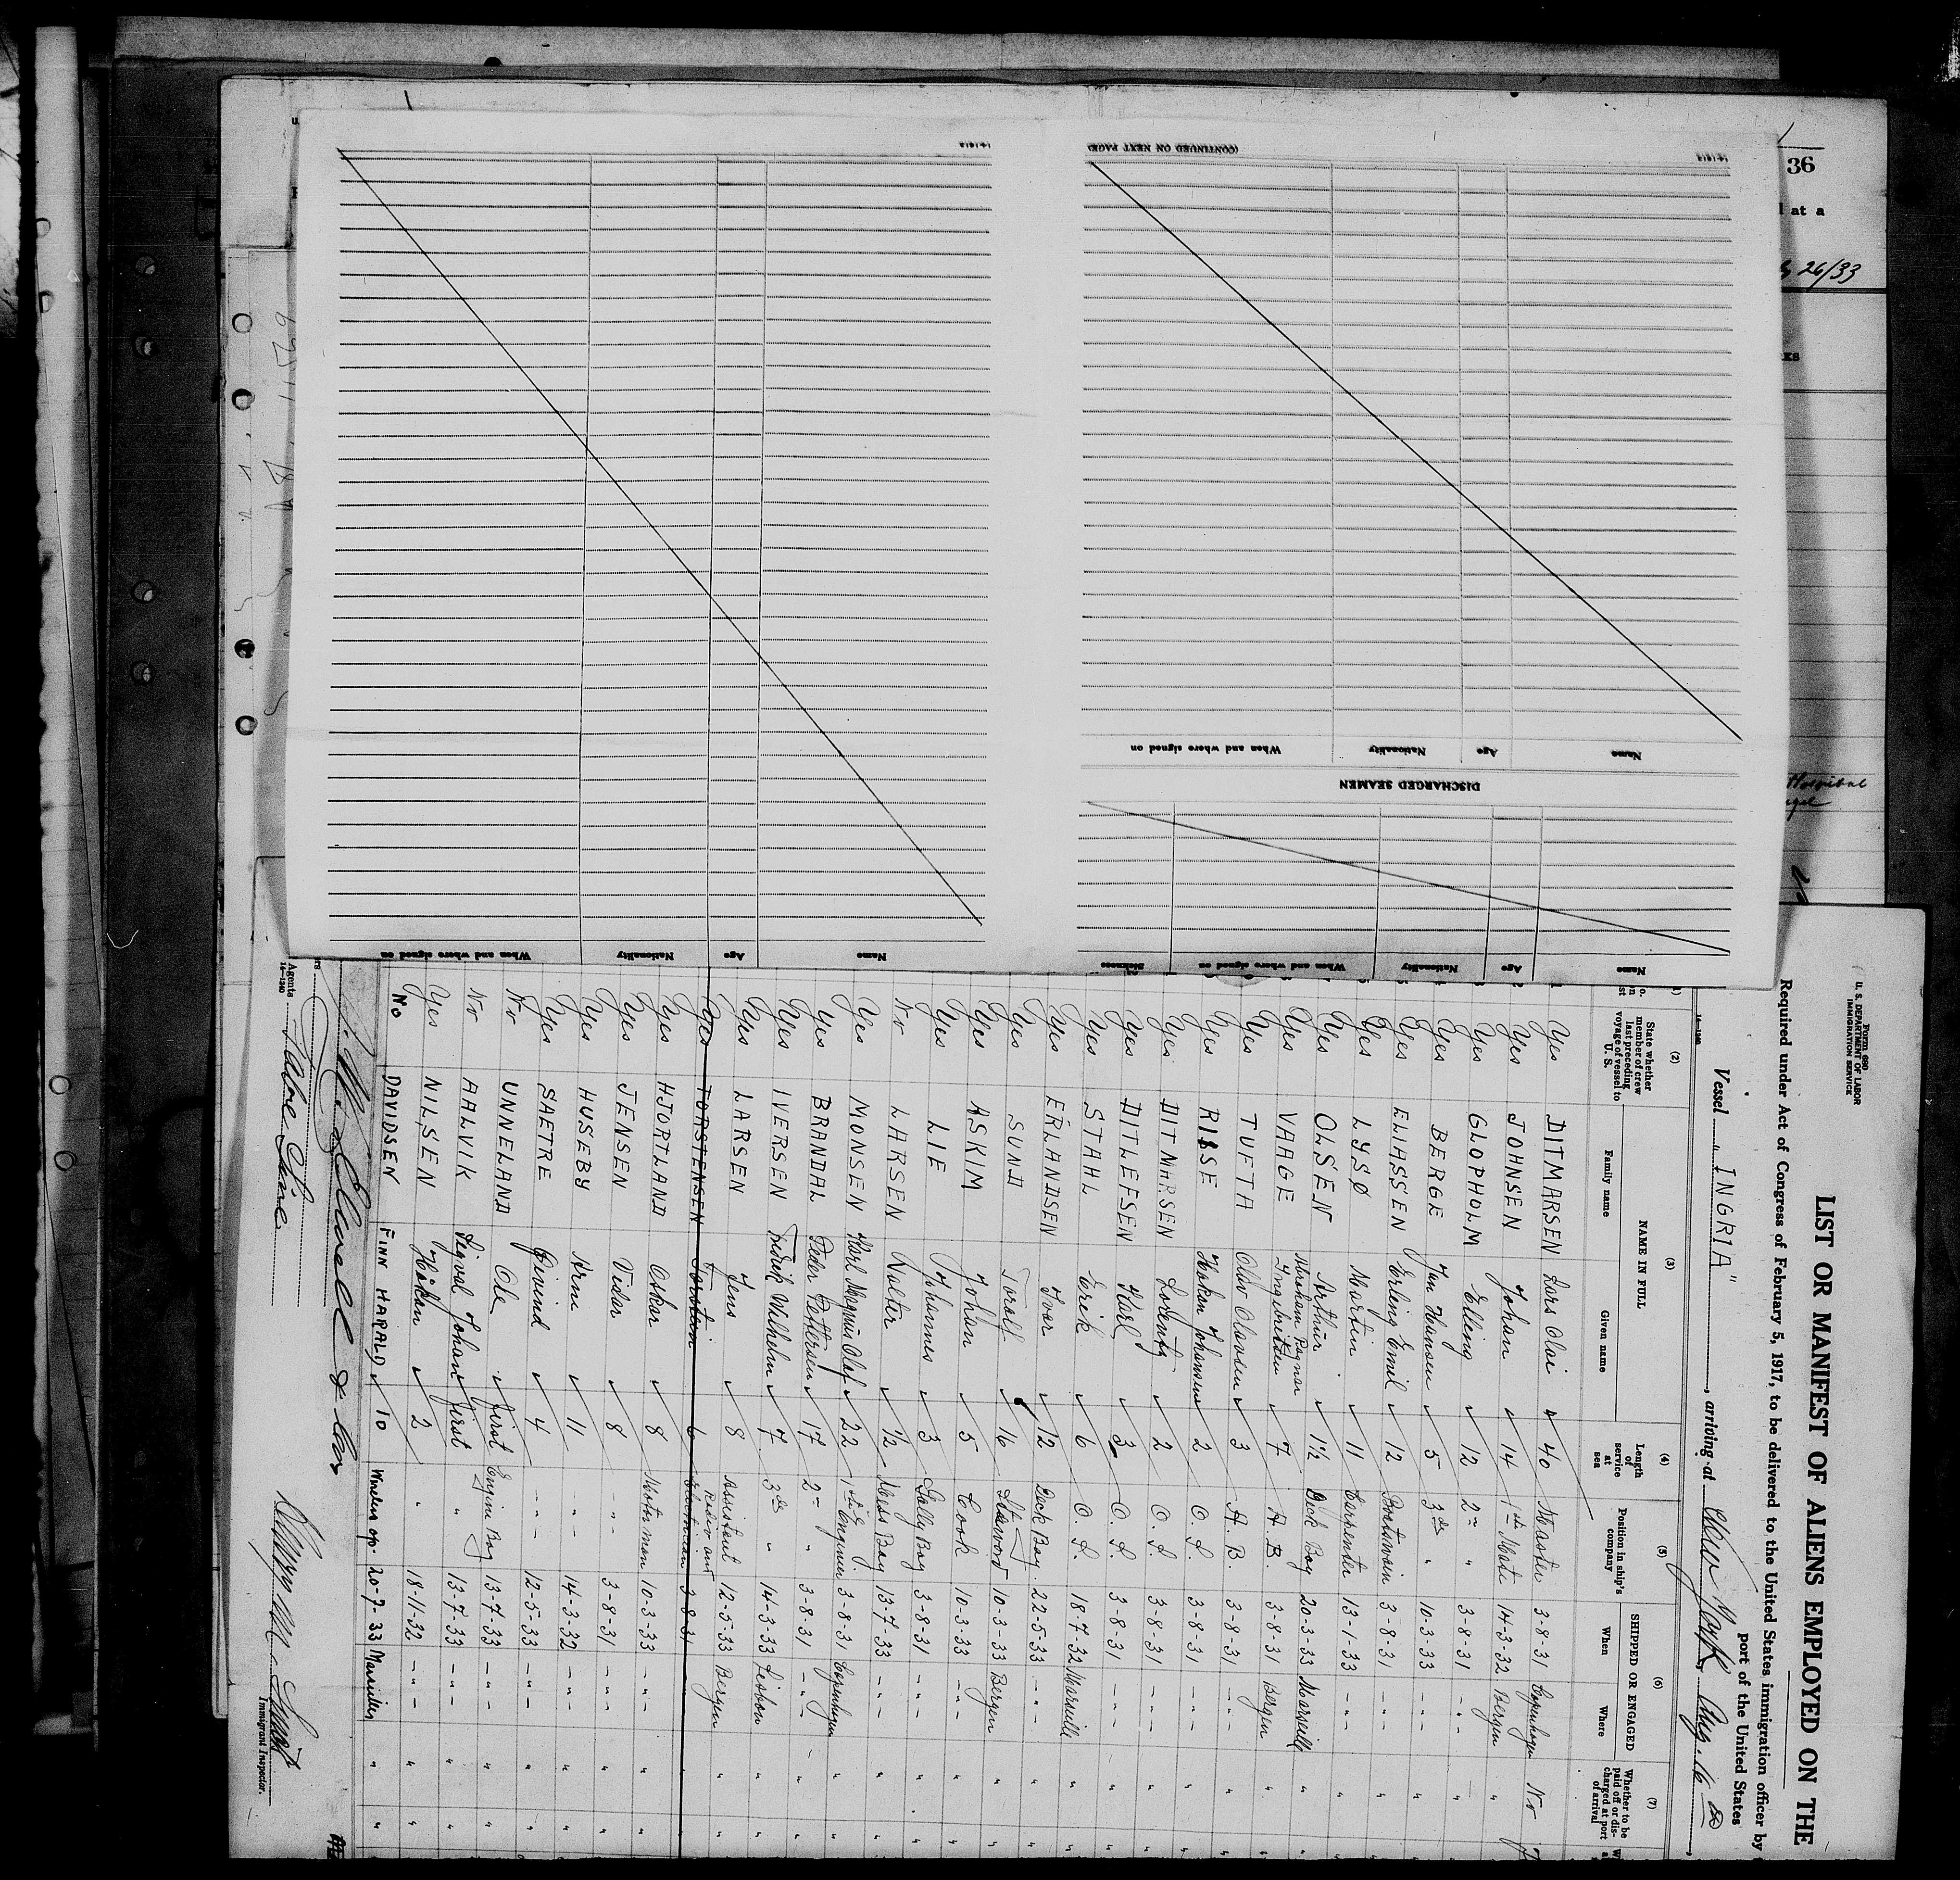 36
at a
26/33
Hospital
(CONTINUED ON NEXT PAGE)
Name Age Nationality When and where signed on
DISCHARGED SEAMEN
Name Age Nationality When and where signed on Sickness
Name Age Nationality When and where signed on
Form 680
U. S. DEPARTMENT OF LABOR
IMMIGRATION SERVICE
LIST OR MANIFEST OF ALIENS EMPLOYED ON THE
Required under Act of Congress of February 5, 1917, to be delivered to the United States immigration officer by
port of the United States
Vessel "INGRIA", arriving at New York, Aug. 16
14-1240
(2) (3) (4) (5) (6) (7)
State whether member of crew last preceding voyage of vessel to U. S.
NAME IN FULL
Family name Given name
Length of service at sea
Position in ship's company
SHIPPED OR ENGAGED
When Where
Whether to be paid off or discharged at port of arrival
Yes DITMARSEN Lars Olai 40 Master 3-8-31 Copenhagen No
Yes JOHNSEN Johan 14 1st Mate 14-3-32 Bergen "
Yes GLOPHOLM Elling 12 2nd " 3-8-31 - " -
Yes BERGE Jan Hansen 5 3rd " 10-3-33 - " - "
Yes ELIASSEN Erling Emil 12 Boatswain 3-8-31 - " - "
Yes LYSØ Martin 11 Carpenter 13-1-33 - " - "
Yes OLSEN Arthur 1½ Deck Boy 20-3-33 Marseille "
Yes VAAGE Abraham Ragnar Ingebritsen 7 A. B. 3-8-31 Bergen "
Yes TUFTA Olav Olavsen 3 A. B. 3-8-31 - " - "
Yes RISSE Hakon Johansen 2 O. S. 3-8-31 - " - "
Yes DITMARSEN Lorentz 2 O. S. 3-8-31 - " - "
Yes DITLEFSEN Karl 3 O. S. 3-8-31 - " - "
Yes STAHL Erik 6 O. S. 18-7-32 Marseille "
Yes ERLANDSEN Ivar 12 Deck Boy 22-5-33 - " - "
Yes SUND Toralf 16 Steward 10-3-33 Bergen "
Yes ASKIM Johan 5 Cook 10-3-33 - " - "
Yes LIE Johannes 3 Gally Boy 3-8-31 - " - "
No LARSEN Walter ½ Mess Boy 13-7-33 - " - "
Yes MONSEN Karl Magnus Olaf 22 1st Enginer 3-8-31 Copenhagen "
Yes BRANDAL Peder Pettersen 17 2nd " 3-8-31 - " - "
Yes IVERSEN Fredrik Wilhelm 7 3rd " 14-3-33 Lisbon "
Yes LARSEN Jens 8 Assistant 12-5-33 Bergen "
Yes TORSTENSEN Torstein 6 3-8-31 "
Yes HJORTLAND Oskar 8 10-3-33 - " - "
Yes JENSEN Vidar 8 - " - 3-8-31 - " - "
Yes HUSEBY Arne 11 - " - 14-3-32 - " - "
Yes SAETRE Eivind 4 - " - 12-5-33 - " - "
No UNNELAND Ole first Engine Boy 13-7-33 - " - "
No AALVIK Sigval Johan first " 13-7-33 - " - "
Yes NILSEN Håkon 2 " 18-11-32 - " - "
No DAVIDSEN FINN HARALD 10 Wireless op. 20-7-33 Marseilles "
Agents
14-1240
Fabre Line
Immigrant Inspector.